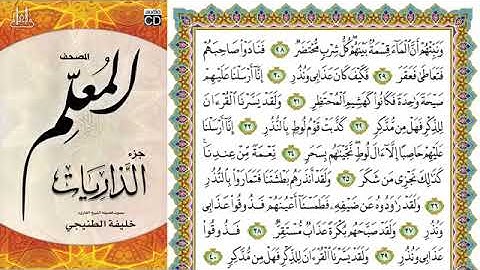 audio
CD
المصحف
المُعلِّم
جزء
الذاريات
بصوت فضيلة الشيخ القارئ
خليفة الطنيجي
وَنَبِّئْهُمْ أَنَّ ٱلْمَآءَ قِسْمَةٌۢ بَيْنَهُمْ كُلُّ شِرْبٍ مُّحْتَضَرٌ ٢٨ فَنَادَوْا۟ صَاحِبَهُمْ
فَتَعَاطَىٰ فَعَقَرَ ٢٩ فَكَيْفَ كَانَ عَذَابِى وَنُذُرِ ٣٠ إِنَّآ أَرْسَلْنَا عَلَيْهِمْ
صَيْحَةً وَٰحِدَةً فَكَانُوا۟ كَهَشِيمِ ٱلْمُحْتَظِرِ ٣١ وَلَقَدْ يَسَّرْنَا ٱلْقُرْءَانَ
لِلذِّكْرِ فَهَلْ مِن مُّدَّكِرٍ ٣٢ كَذَّبَتْ قَوْمُ لُوطٍۭ بِٱلنُّذُرِ ٣٣ إِنَّآ أَرْسَلْنَا
عَلَيْهِمْ حَاصِبًا إِلَّآ ءَالَ لُوطٍ نَّجَّيْنَٰهُم بِسَحَرٍ ٣٤ نِّعْمَةً مِّنْ عِندِنَا
كَذَٰلِكَ نَجْزِى مَن شَكَرَ ٣٥ وَلَقَدْ أَنذَرَهُم بَطْشَتَنَا فَتَمَارَوْا۟ بِٱلنُّذُرِ
٣٦ وَلَقَدْ رَٰوَدُوهُ عَن ضَيْفِهِۦ فَطَمَسْنَآ أَعْيُنَهُمْ فَذُوقُوا۟ عَذَابِى
وَنُذُرِ ٣٧ وَلَقَدْ صَبَّحَهُم بُكْرَةً عَذَابٌ مُّسْتَقِرٌّ ٣٨ فَذُوقُوا۟
عَذَابِى وَنُذُرِ ٣٩ وَلَقَدْ يَسَّرْنَا ٱلْقُرْءَانَ لِلذِّكْرِ فَهَلْ مِن مُّدَّكِرٍ ٤٠